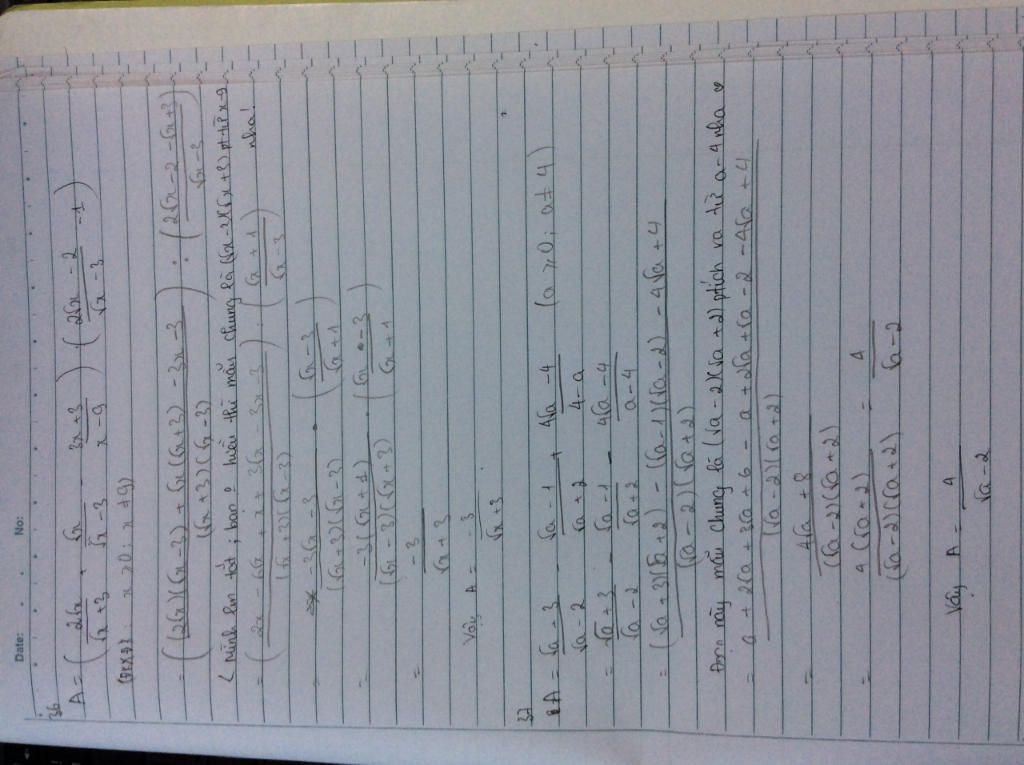 Date: No:
36
A = ( 2√x / (√x + 3) + √x / (√x - 3) - (3x + 3) / (x - 9) ) : ( (2√x - 2) / (√x - 3) - 1 )
(ĐKXĐ: x ≥ 0 ; x ≠ 9)
= ( ((2√x)(√x - 3) + √x(√x + 3) - 3x - 3) / ((√x + 3)(√x - 3)) ) : ( (2√x - 2 - √x + 3) / (√x - 3) )
nha!
= ( (2x - 6√x + x + 3√x - 3x - 3) / ((√x + 3)(√x - 3)) ) : ( (√x + 1) / (√x - 3) )
= (-3√x - 3) / ((√x + 3)(√x - 3)) . ( (√x - 3) / (√x + 1) )
= -3(√x + 1) / ((√x - 3)(√x + 3)) . ( (√x - 3) / (√x + 1) )
= -3 / (√x + 3)
Vậy A = -3 / (√x + 3)
37
A = (√a + 3) / (√a - 2) - (√a - 1) / (√a + 2) + (4√a - 4) / (4 - a) (a ≥ 0 ; a ≠ 4)
= (√a + 3) / (√a - 2) - (√a - 1) / (√a + 2) - (4√a - 4) / (a - 4)
= ((√a + 3)(√a + 2) - (√a - 1)(√a - 2) - 4√a + 4) / ((√a - 2)(√a + 2))
Đoạn này mẫu chung là (√a - 2)(√a + 2) ptích ra từ a - 4 nha ♡
= (a + 2√a + 3√a + 6 - a + 2√a + √a - 2 - 4√a + 4) / ((√a - 2)(√a + 2))
= (4√a + 8) / ((√a - 2)(√a + 2))
= 4(√a + 2) / ((√a - 2)(√a + 2)) = 4 / (√a - 2)
Vậy A = 4 / (√a - 2)